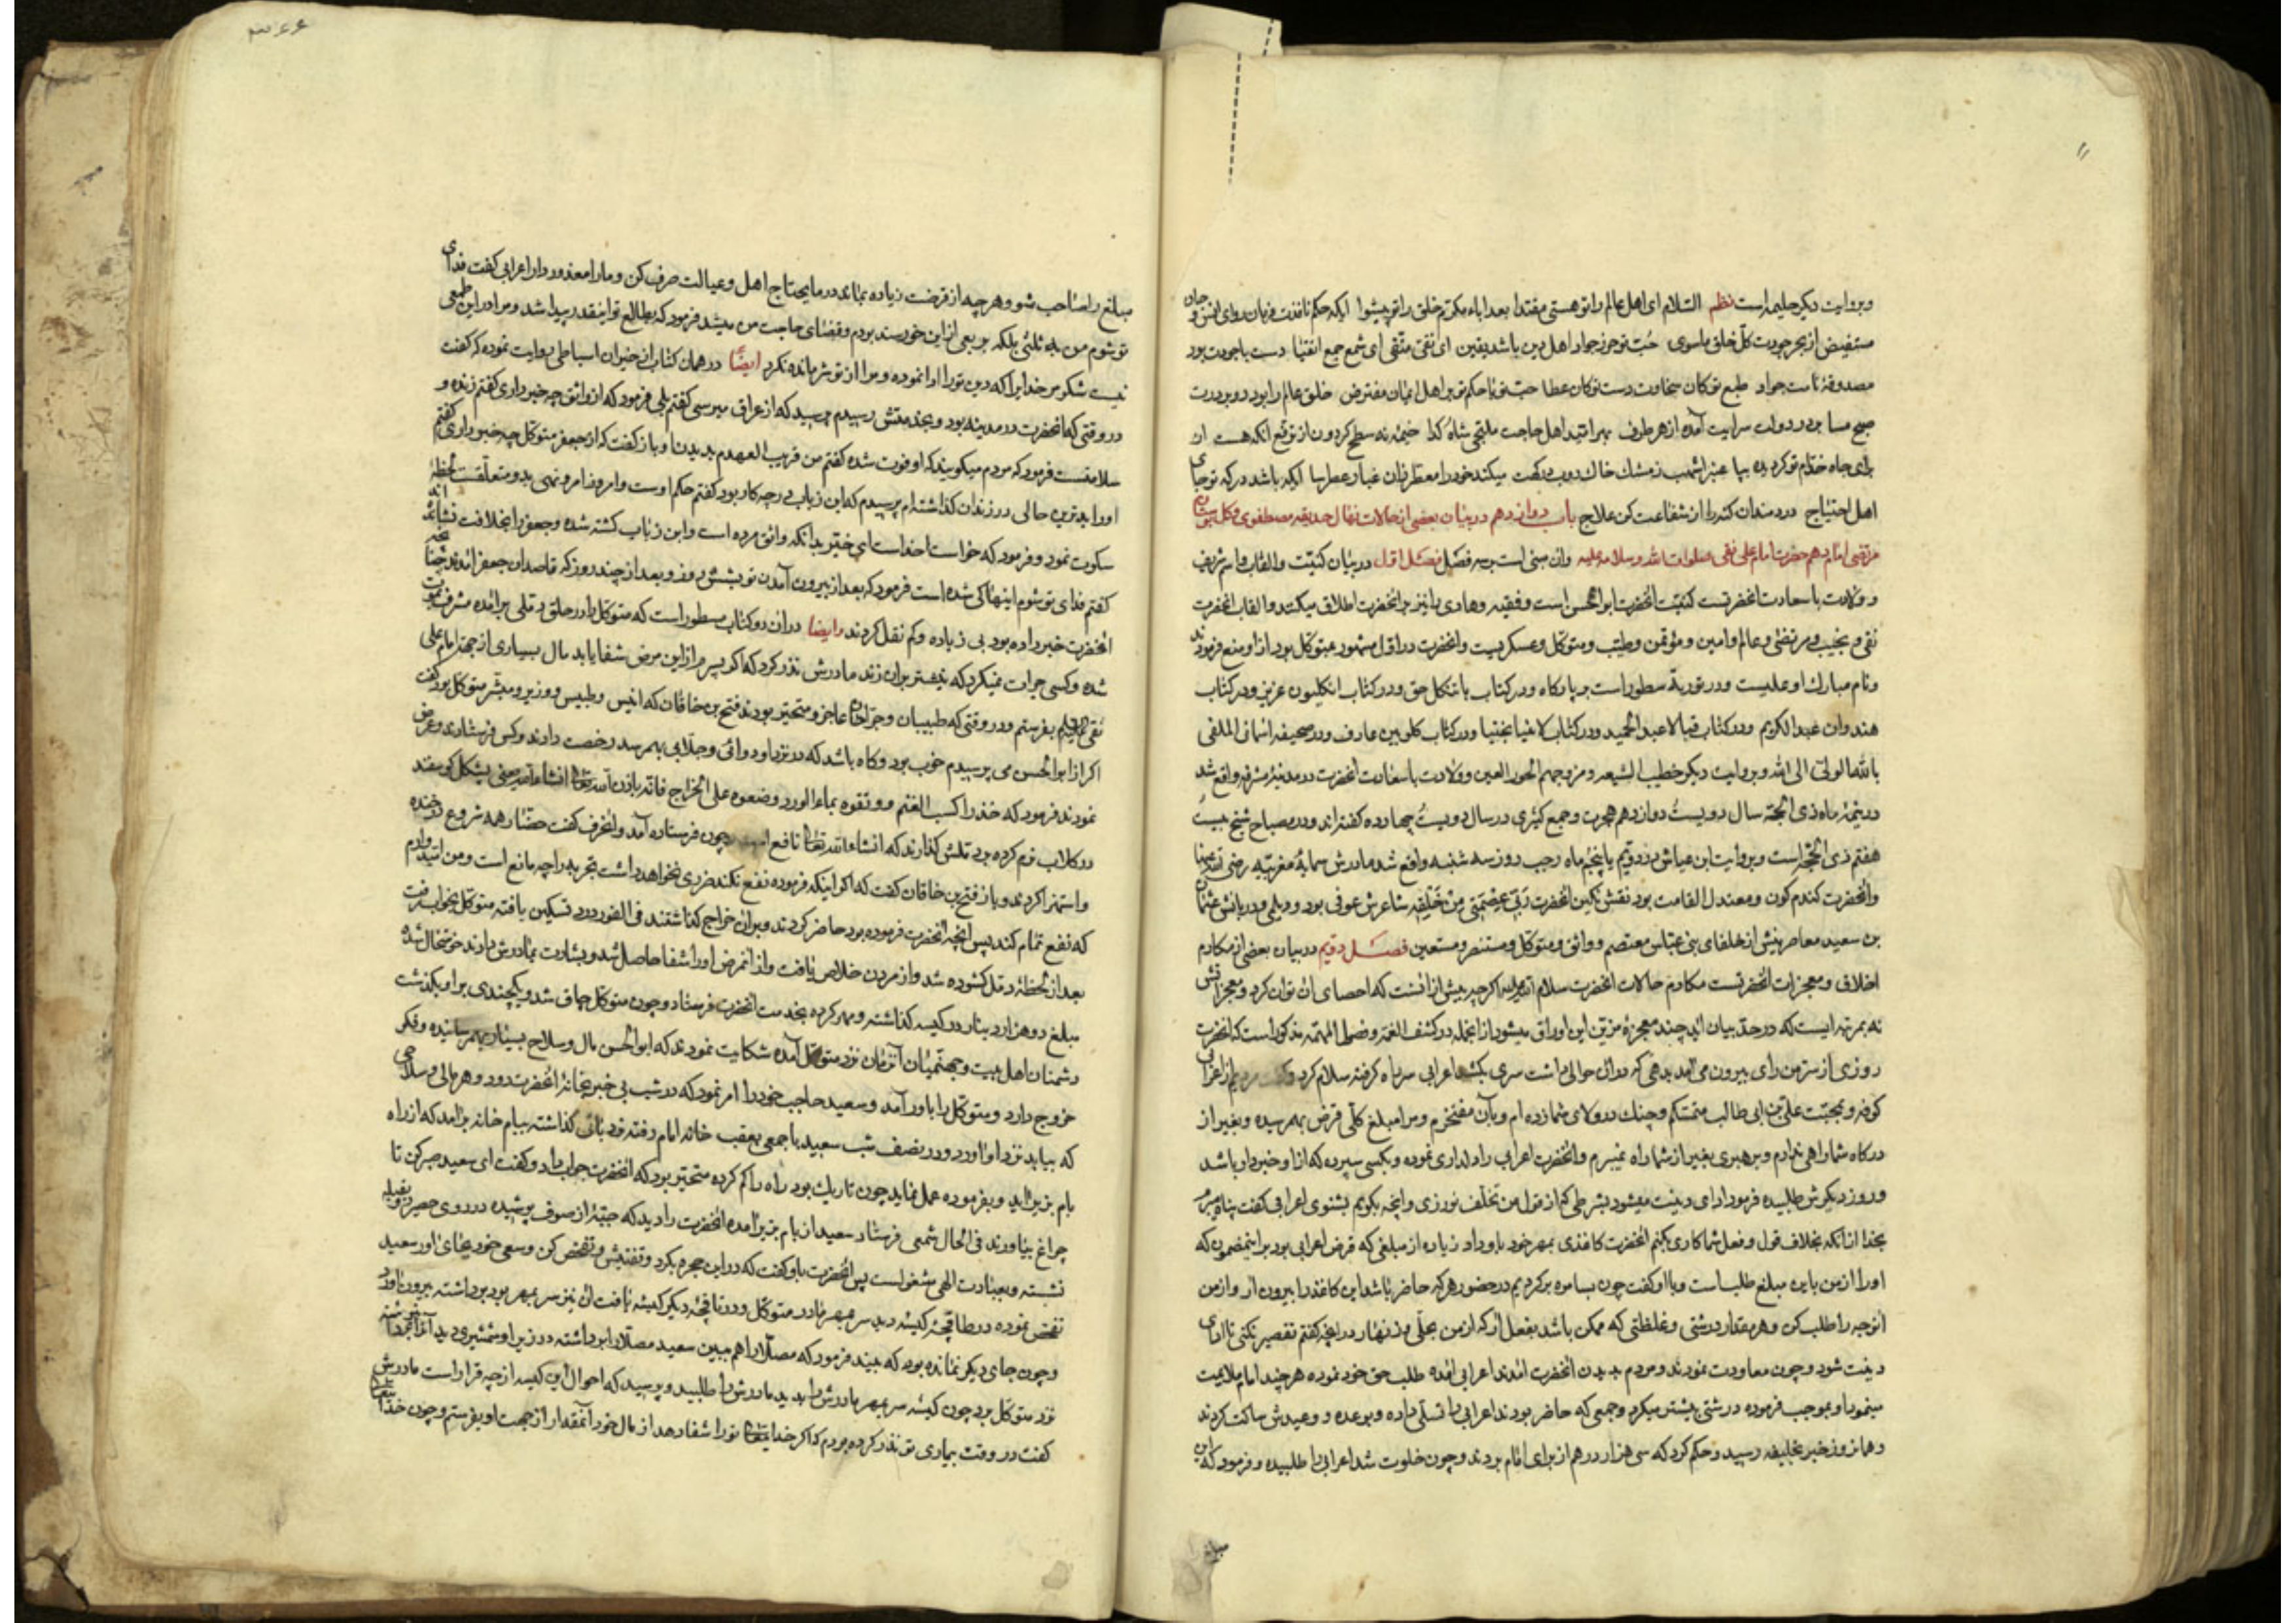 وبروایت دیکر حلیمه است نظم السلام ای اهل عالم را تو هستی مقتدا بعد اباء مکرم خلق را تو پیشوا ایکه حکم نافذت فرمان روای انس و جان
مستفیض از بحر جودت کل خلق ماسوی حب تو حرز جواد اهل دین باشد یقین ای نقی متقی ای شمع جمع اتقیا دست با جودت بود
طبع تو کان سخاوت دست تو کان عطا حب تو با حکم تو بر اهل ایمان مفترض خلق عالم را بود
صبح مسا بر در دولت سرایت آمده از هر طرف بهر امید اهل حاجت ملتجی شاه کدا
برای جاه خدام تو کرده بپا عنبر اشهب ز مشک خاک دوبت میکند خود را معطر
اهل احتیاج دردمندان کنه را از شفاعت کن علاج باب دوازدهم در بیان بعضی از حالات نهال حدیقه مصطفوی وکل بوستان
مرتضی امام دهم حضرت امام علی نقی صلوات الله وسلامه علیه وان مبنی است بر سه فصل فصل اول در بیان کنیت والقاب واسم شریف
وولادت باسعادت انحضرتست کنیت انحضرت ابوالحسن است وفقیه وهادی را نیز بر انحضرت اطلاق میکنند والقاب انحضرت
نقی ونجیب ومرتضی وعالم وامین ومؤتمن وطیب ومتوکل وعسکریست وانحضرت در اول مشهور بمتوکل بود از او منع فرمودند
ونام مبارک او علیست ودر توریة مسطور است ودر کتاب باتنکل حق ودر کتاب انکلیون عزیز ودر کتاب
هندوان عبد الکریم ودر کتاب قبالا عبد الحمید ودر کتاب ودر کتاب عارف ودر صحیفه اسمانی الملقی
بالله الولی الی الله وبروایت دیکر خطیب الشیعه ومزوجهم الحور العین وولادت باسعادت انحضرت در مدینه مشرفه واقع شد
در نیمه ماه ذی الحجه سال دویست دوازدهم هجرت وجمع کثیری در سال دویست چهارده کفته اند ودر مصباح شیخ بیست
هفتم ذی الحجه است وبروایت ابن عیاش در دویم یا پنجم ماه رجب روز سه شنبه واقع شد مادرش سمانه مغربیه رضی الله عنها
وانحضرت کندم کون ومعتدل القامت بود نقش نکین انحضرت شاعرش عوفی بود ودیلمی ودربانش عثمان
بن سعید معاصرینش از خلفای بنی عباس معتصم وواثق ومتوکل ومستنصر ومستعین فصل دویم در بیان بعضی از مکارم
اخلاق ومعجزات انحضرتست مکارم حالات انحضرت سلام الله علیه اکرچه بیش از انست که احصای ان توان کرد ومعجزاتش
نه بمرتبه ایست که در حد بیان اید چند معجزه مزین این اوراق میشود از انجمله در کشف الغمه وفصول المهمه مذکور است که انحضرت
روزی از سر من رای بیرون می آمد بدهی که در ان حوالی داشت سری بکشد اعرابی سر راه کرفته سلام کرد
کوفه وبمحبت علی بن ابی طالب متمسکم وچنک در ولای شما زده ام وبآن مفتخرم ومرا مبلغ کلی قرض بهم رسیده وبغیر از
درکاه شما راهی ندارم وبرهبری بغیر از شما راه نمیبرم وانحضرت اعرابی را دلداری نموده وبکسی سپرده که از او خبردار باشد
وروز دیکرش طلبیده فرمود ادای دینت میشود بشرطی که از قول من تخلف نورزی وانچه بکویم بشنوی اعرابی کفت پناه میبرم
بخدا از انکه بخلاف قول وفعل شما کاری بکنم انحضرت کاغذی بمهر خود باو داد زیاده از مبلغی که قرض اعرابی بود براینمضمون که
اورا از من باین مبلغ طلب است وبا او کفت چون بسامره برکردیم در حضور هر که حاضر باشد این کاغذ را بیرون ار واز من
انوجه را طلب کن وهر مقدار درشتی وغلظتی که ممکن باشد بفعل ار که از من بحلی وزنهار در انچه کفتم تقصیر نکنی تا ادای
دینت شود وچون معاودت نمودند ومردم بدیدن انحضرت امدند اعرابی امده طلب حق خود نموده هر چند امام ملایمت
مینمود او بموجب فرموده درشتی بیشتر میکرد وجمعی که حاضر بودند اعرابی را تسلی داده وبوعده ووعیدش ساکت کردند
وهمانروز خبر بخلیفه رسید وحکم کرد که سی هزار درهم از برای امام بردند وچون خلوت شد اعرابی را طلبیده وفرمود که این
مبلغ
مبلغ را صاحب شو وهر چه از قرضت زیاده بماند در مایحتاج اهل وعیالت صرف کن ومارا معذور دار اعرابی کفت فدای
تو شوم من بلکه بربعی از این خورسند بودم وقضای حاجت من میشد فرمود که بطالع تو اینقدر پیدا شد ومرا در این طمعی
نیست شکر مر خدایرا که دین تورا ادا نموده ومرا از تو شرمانده نکرد ایضا در همان کتاب از خیران اسباطی روایت نموده که کفت
در وقتی که انحضرت در مدینه بود وبخدمتش رسیدم پرسید که از عراق میرسی کفتم بلی فرمود که از واثق چه خبر داری کفتم زنده و
سلامتست فرمود که مردم میکویند که او فوت شده کفتم من قریب العهدم بدیدن او باز کفت که از جعفر متوکل چه خبر داری کفتم
اورا بدترین حالی در زندان کذاشته ام پرسیدم که ابن زیات در چه کار بود کفتم حکم اوست وامر وامر ونهی بدو متعلقست لحظه
سکوت نمود وفرمود که خواست خداست ای خیر بدانکه واثق مرده است وابن زیات کشته شده وجعفر را بخلافت نشانده اند
کفتم فدای تو شوم اینها کی شده است فرمود که بعد از بیرون آمدن تو بشش روز وبعد از چند روز که قاصدان جعفر امدند چنانچه
انحضرت خبر داده بود بی زیاده وکم نقل کردند وایضا در ان دو کتاب مسطور است که متوکل را در حلق دملی برامده مشرف بموت
شده وکسی جرات نمیکرد که نیشتر بران زند مادرش نذر کرد که اکر پسرم از این مرض شفا یابد مال بسیاری از جهة امام علی
نقی بفرستم ودر وقتی که طبیبان وجراحان عاجز ومتحیر بودند فتح بن خاقان که انیس وجلیس ووزیر ومبشر متوکل بود کفت
اکر از ابوالحسن می پرسیدم خوب بود وکاه باشد که در نزد او دوائی وجلابی بهم رسد رخصت دادند وکس فرستادند وعرض
نمودند فرمود که خذوا کسب الغنم ودیقوه بماء الورد وضعوه علی الخراج فانه باذن الله تعالی انشاء الله یعنی پشکل کوسفند
در کلاب نرم کرده بر دملش کذارند که انشاء الله تعالی نافع است چون فرستاده آمد وانحرف کفت حضار همه شروع در خنده
واستهزا کردند وباز فتح بن خاقان کفت که اکر اینکه فرموده نفع نکند ضرری نخواهد داشت تجربه را چه مانع است ومن امیدوارم
که نفع تمام کند پس انچه انحضرت فرموده بود حاضر کردند وبران خراج کذاشتند فی الفور درد تسکین یافته متوکل بخواب رفت
بعد از لحظه دمل کشوده شد واز مردن خلاص یافت واز انمرض اورا شفا حاصل شد وبشارت بمادرش دادند خوشحال شده
مبلغ دو هزار دینار در کیسه کذاشته ومهر کرده بخدمت انحضرت فرستاد وچون متوکل چاق شد ویکچندی بر او بکذشت
دشمنان اهل بیت وجهنمیان آنزمان نزد متوکل آمده شکایت نمودند که ابوالحسن مال وسلاح بسیار بهم رسانیده وفکر
خروج دارد ومتوکل را باور آمد وسعید حاجب خود را امر نمود که در شب بی خبر بخانه انحضرت رود وهر مالی وسلاحی
که بیابد نزد او اورد ودر نصف شب سعید با جمعی بعقب خانه امام رفته نردبانی کذاشته ببام خانه برامد که از راه
بام بزیر اید وبفرموده عمل نماید چون تاریک بود راه را کم کرده متحیر بود که انحضرت جواب داد وکفت ای سعید صبر کن تا
چراغ بیاورند فی الحال شمعی فرستاد سعید از بام بزیر امده انحضرت را دید که جبه از صوف پوشیده در روی حصیر رو بقبله
نشسته وبعبادت الهی مشغولست پس انحضرت باو کفت که در این حجره بکرد وتفتیش وتفحص کن وسعی خود بجای اور سعید
تفحص نموده در طاقچه کیسه دید سر بمهر مادر متوکل ودر طاقچه دیکر کیسه یافت ان نیز سر بمهر بود برداشته بیرون اورد
وچون جای دیکر نمانده بود که ببیند فرمود که مصلا را هم ببین سعید مصلا را برداشته در زیر او شمشیری دید آنرا برداشته
نزد متوکل برد چون کیسه سر بمهر مادرش را بدید مادرش را طلبید وپرسید که احوال این کیسه از چه قرار است مادرش
کفت در وقت بیماری تو نذر کرده بودم که اکر خدایتعالی تورا شفا دهد از مال خود آنمقدار از جهت او بفرستم وچون خدا